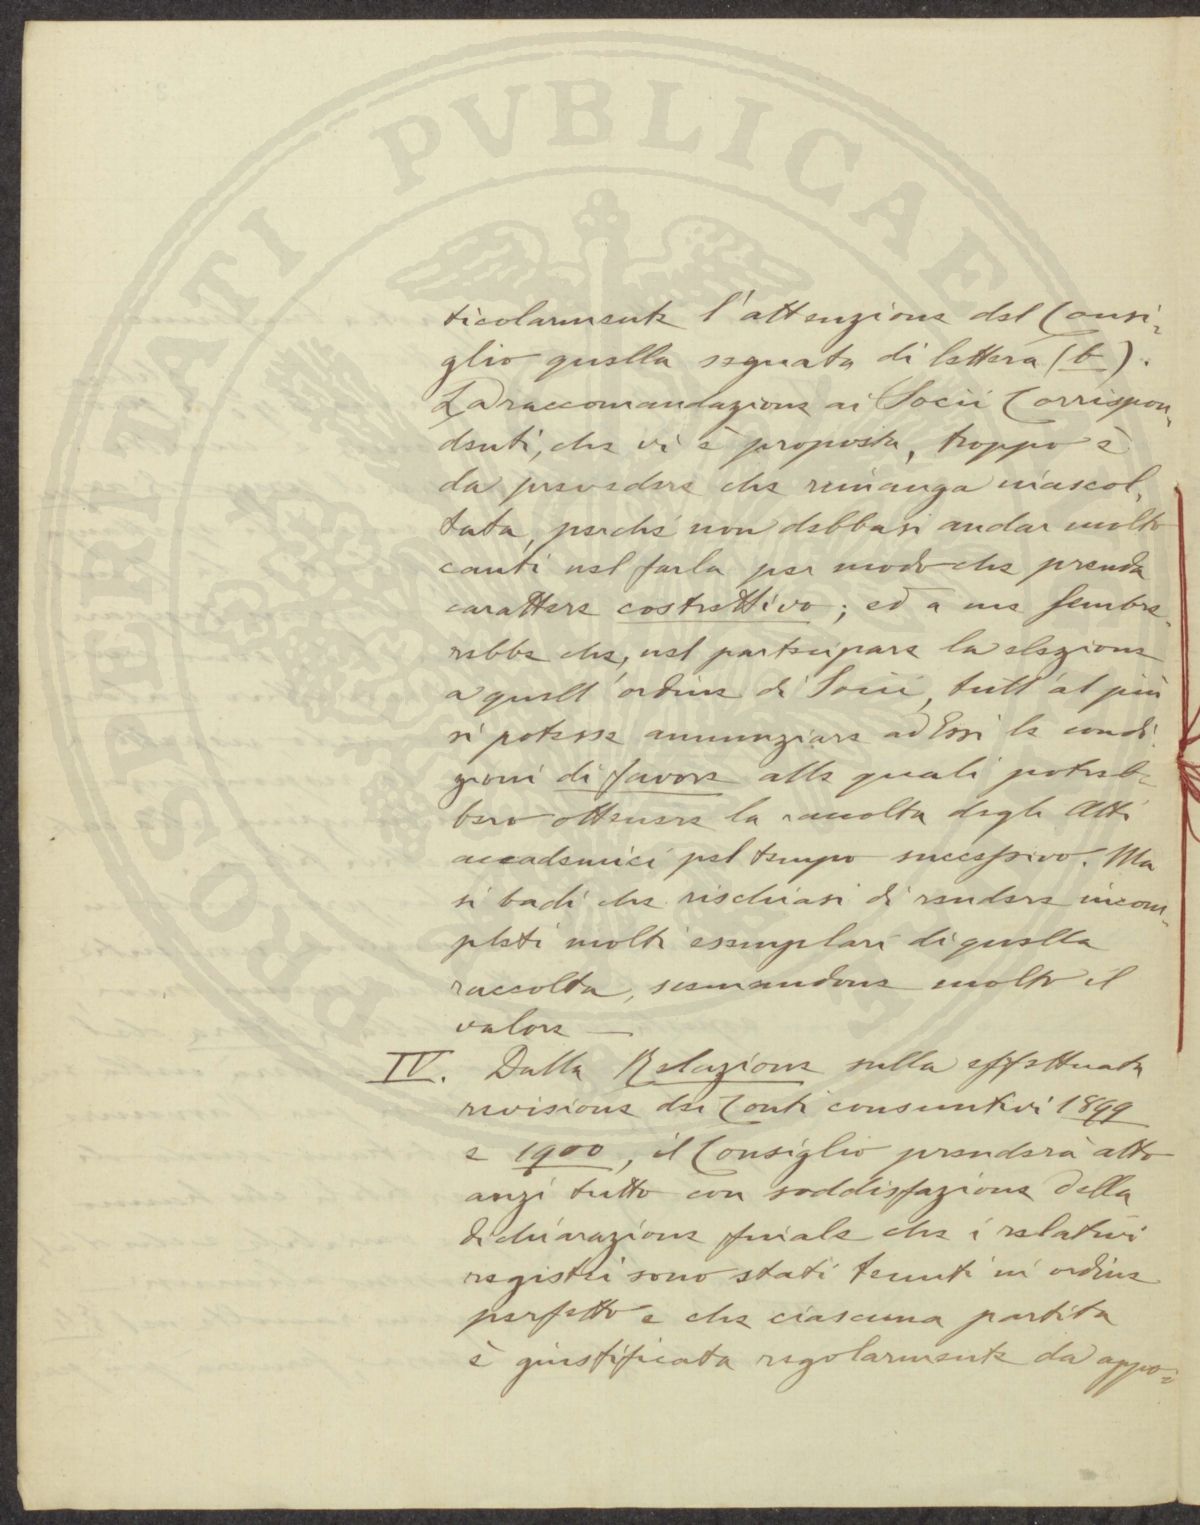 PROSPERITATI PVBLICAE
ticolarmente l'attenzione del Consi-
glio quella segnata di lettera (b).
La raccomandazione ai Socii Corrispon-
denti, che vi è proposta, troppo è
da prevedere che rimanga inascol-
tata, perché non debbasi andar molto
cauti nel farla per modo che prenda
carattere costrettivo; ed a me sembre-
rebbe che, nel partecipare la elezione
a quell'ordine di Socii, tutt'al più
si potesse annunziare ad Essi le condi-
zioni di favore alle quali potreb-
bero ottenere la raccolta degli Atti
accademici pel tempo successivo. Ma
si badi che rischiasi di rendere incom-
pleti molti esemplari di quella
raccolta, scemandone molto il
valore —
IV. Dalla Relazione sulla effettuata
revisione dei Conti consuntivi 1899
e 1900, il Consiglio prenderà atto
anzi tutto con soddisfazione della
dichiarazione finale che i relativi
registri sono stati tenuti in ordine
perfetto e che ciascuna partita
è giustificata regolarmente da appo-